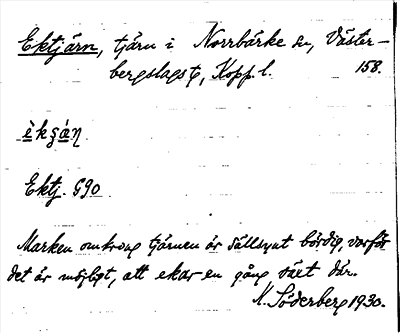 Ektjärn, tjärn i Norrbärke sn, Väster-
bergslags t, Kopp. l. 158.
èkʂá̀ɳ
Ektj. G90
Marken omkring tjärnen är sällsynt bördig, varför
det är möjligt, att ekar en gång växt där.
K. Söderberg 1930.